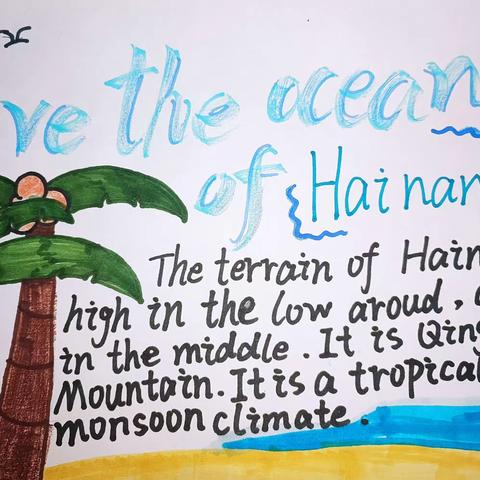 ve the ocean
of Hainan
The terrain of Hain
high in the low aroud,
in the middle. It is Qing
Mountain. It is a tropical
monsoon climate.